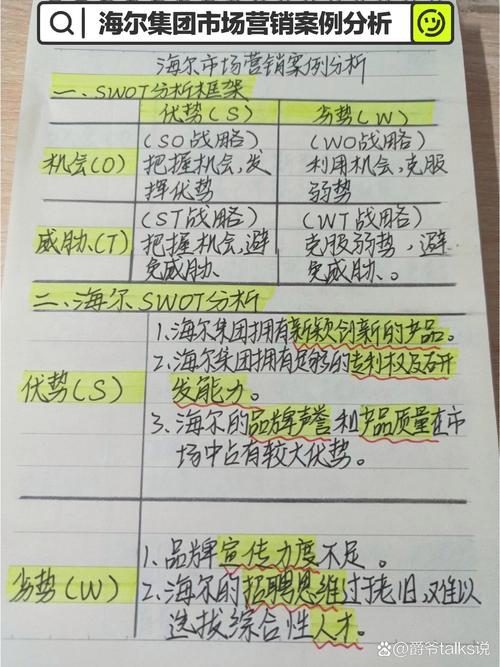 海尔集团市场营销案例分析
海尔市场营销案例分析
一、SWOT分析框架
优势(S) 劣势(W)
机会(O)
(SO战略)
把握机会,发
挥优势
(WO战略)
利用机会,克服
弱势
威胁(T)
(ST战略)
把握机会,避
免威胁
(WT战略)
克服弱势,避
免威胁。
二、海尔SWOT分析
优势(S)
1.海尔集团拥有新颖创新的产品。
2.海尔集团拥有足够的专利权及研
发能力。
3.海尔的品牌声誉和产品质量在市
场中占有较大优势。
劣势(W)
1.品牌宣传力度不足。
2.海尔的招聘思维过于老旧,难以
选拔综合性人才。
爵爷talks说